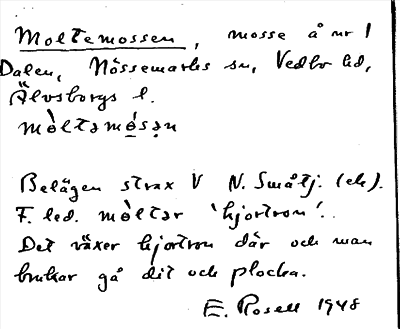 Moltemossen, mosse å nr 1
Dalen, Nössemarks sn, Vedbo hd,
Älvsborgs l.
mòltəmósən
Belägen strax V N. Småtj. (ek).
F. led. mòltər 'hjortron'.
Det växer hjortron där och man
brukar gå dit och plocka.
E. Rosell 1948